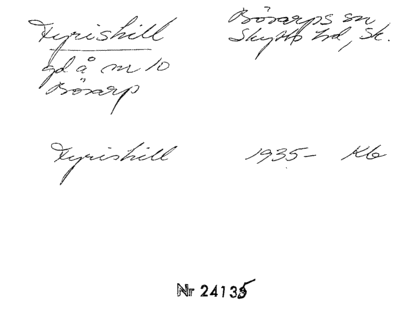 Fyrishill
gd å nr 10
Bösarp
Bösarps sn
Skytts hd, Sk.
Fyrishill 1935– Kb
Nr 24135